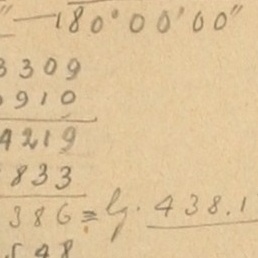 " — 180° 00' 00"
3309
910
4219
833
386 = lg. 438.1
548